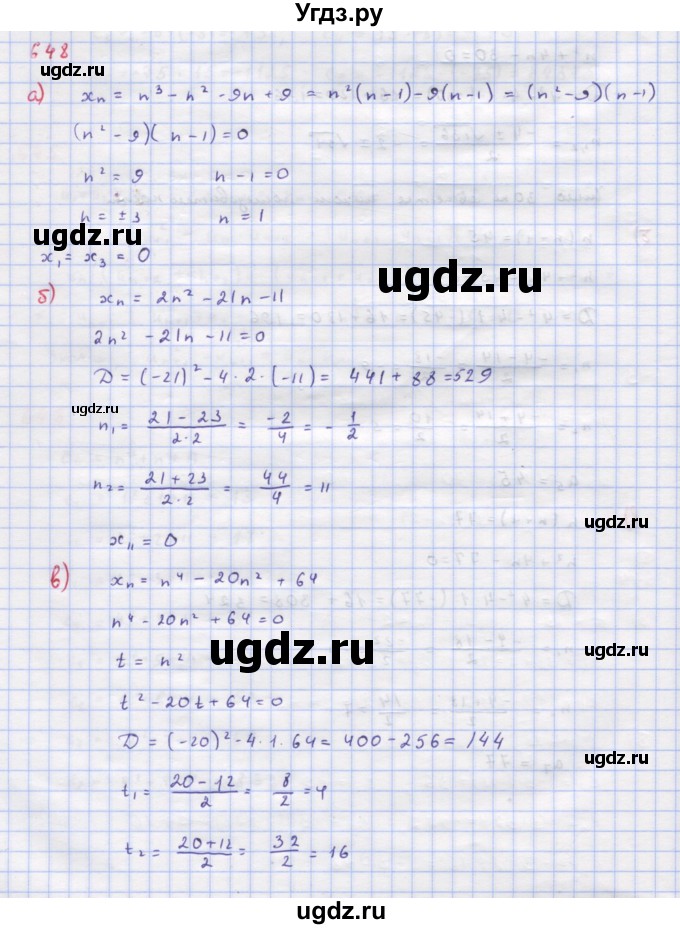 Угдз.ру
648
ugdz.ru
а) xₙ = n³ - n² - 9n + 9 = n²(n-1) - 9(n-1) = (n²-9)(n-1)
(n² - 9)(n - 1) = 0
ugdz.ru
n² = 9 n - 1 = 0
n = ±3 n = 1
ugdz.ru
x₁ = x₃ = 0
ugdz.ru
б) xₙ = 2n² - 21n - 11
2n² - 21n - 11 = 0
D = (-21)² - 4·2·(-11) = 441 + 88 = 529
ugdz.ru
n₁ = (21 - 23)/(2·2) = -2/4 = -1/2
n₂ = (21 + 23)/(2·2) = 44/4 = 11
ugdz.ru
x₁₁ = 0
в) xₙ = n⁴ - 20n² + 64
n⁴ - 20n² + 64 = 0
ugdz.ru
t = n²
ugdz.ru
t² - 20t + 64 = 0
D = (-20)² - 4·1·64 = 400 - 256 = 144
ugdz.ru
t₁ = (20 - 12)/2 = 8/2 = 4
t₂ = (20 + 12)/2 = 32/2 = 16
ugdz.ru
ugdz.ru